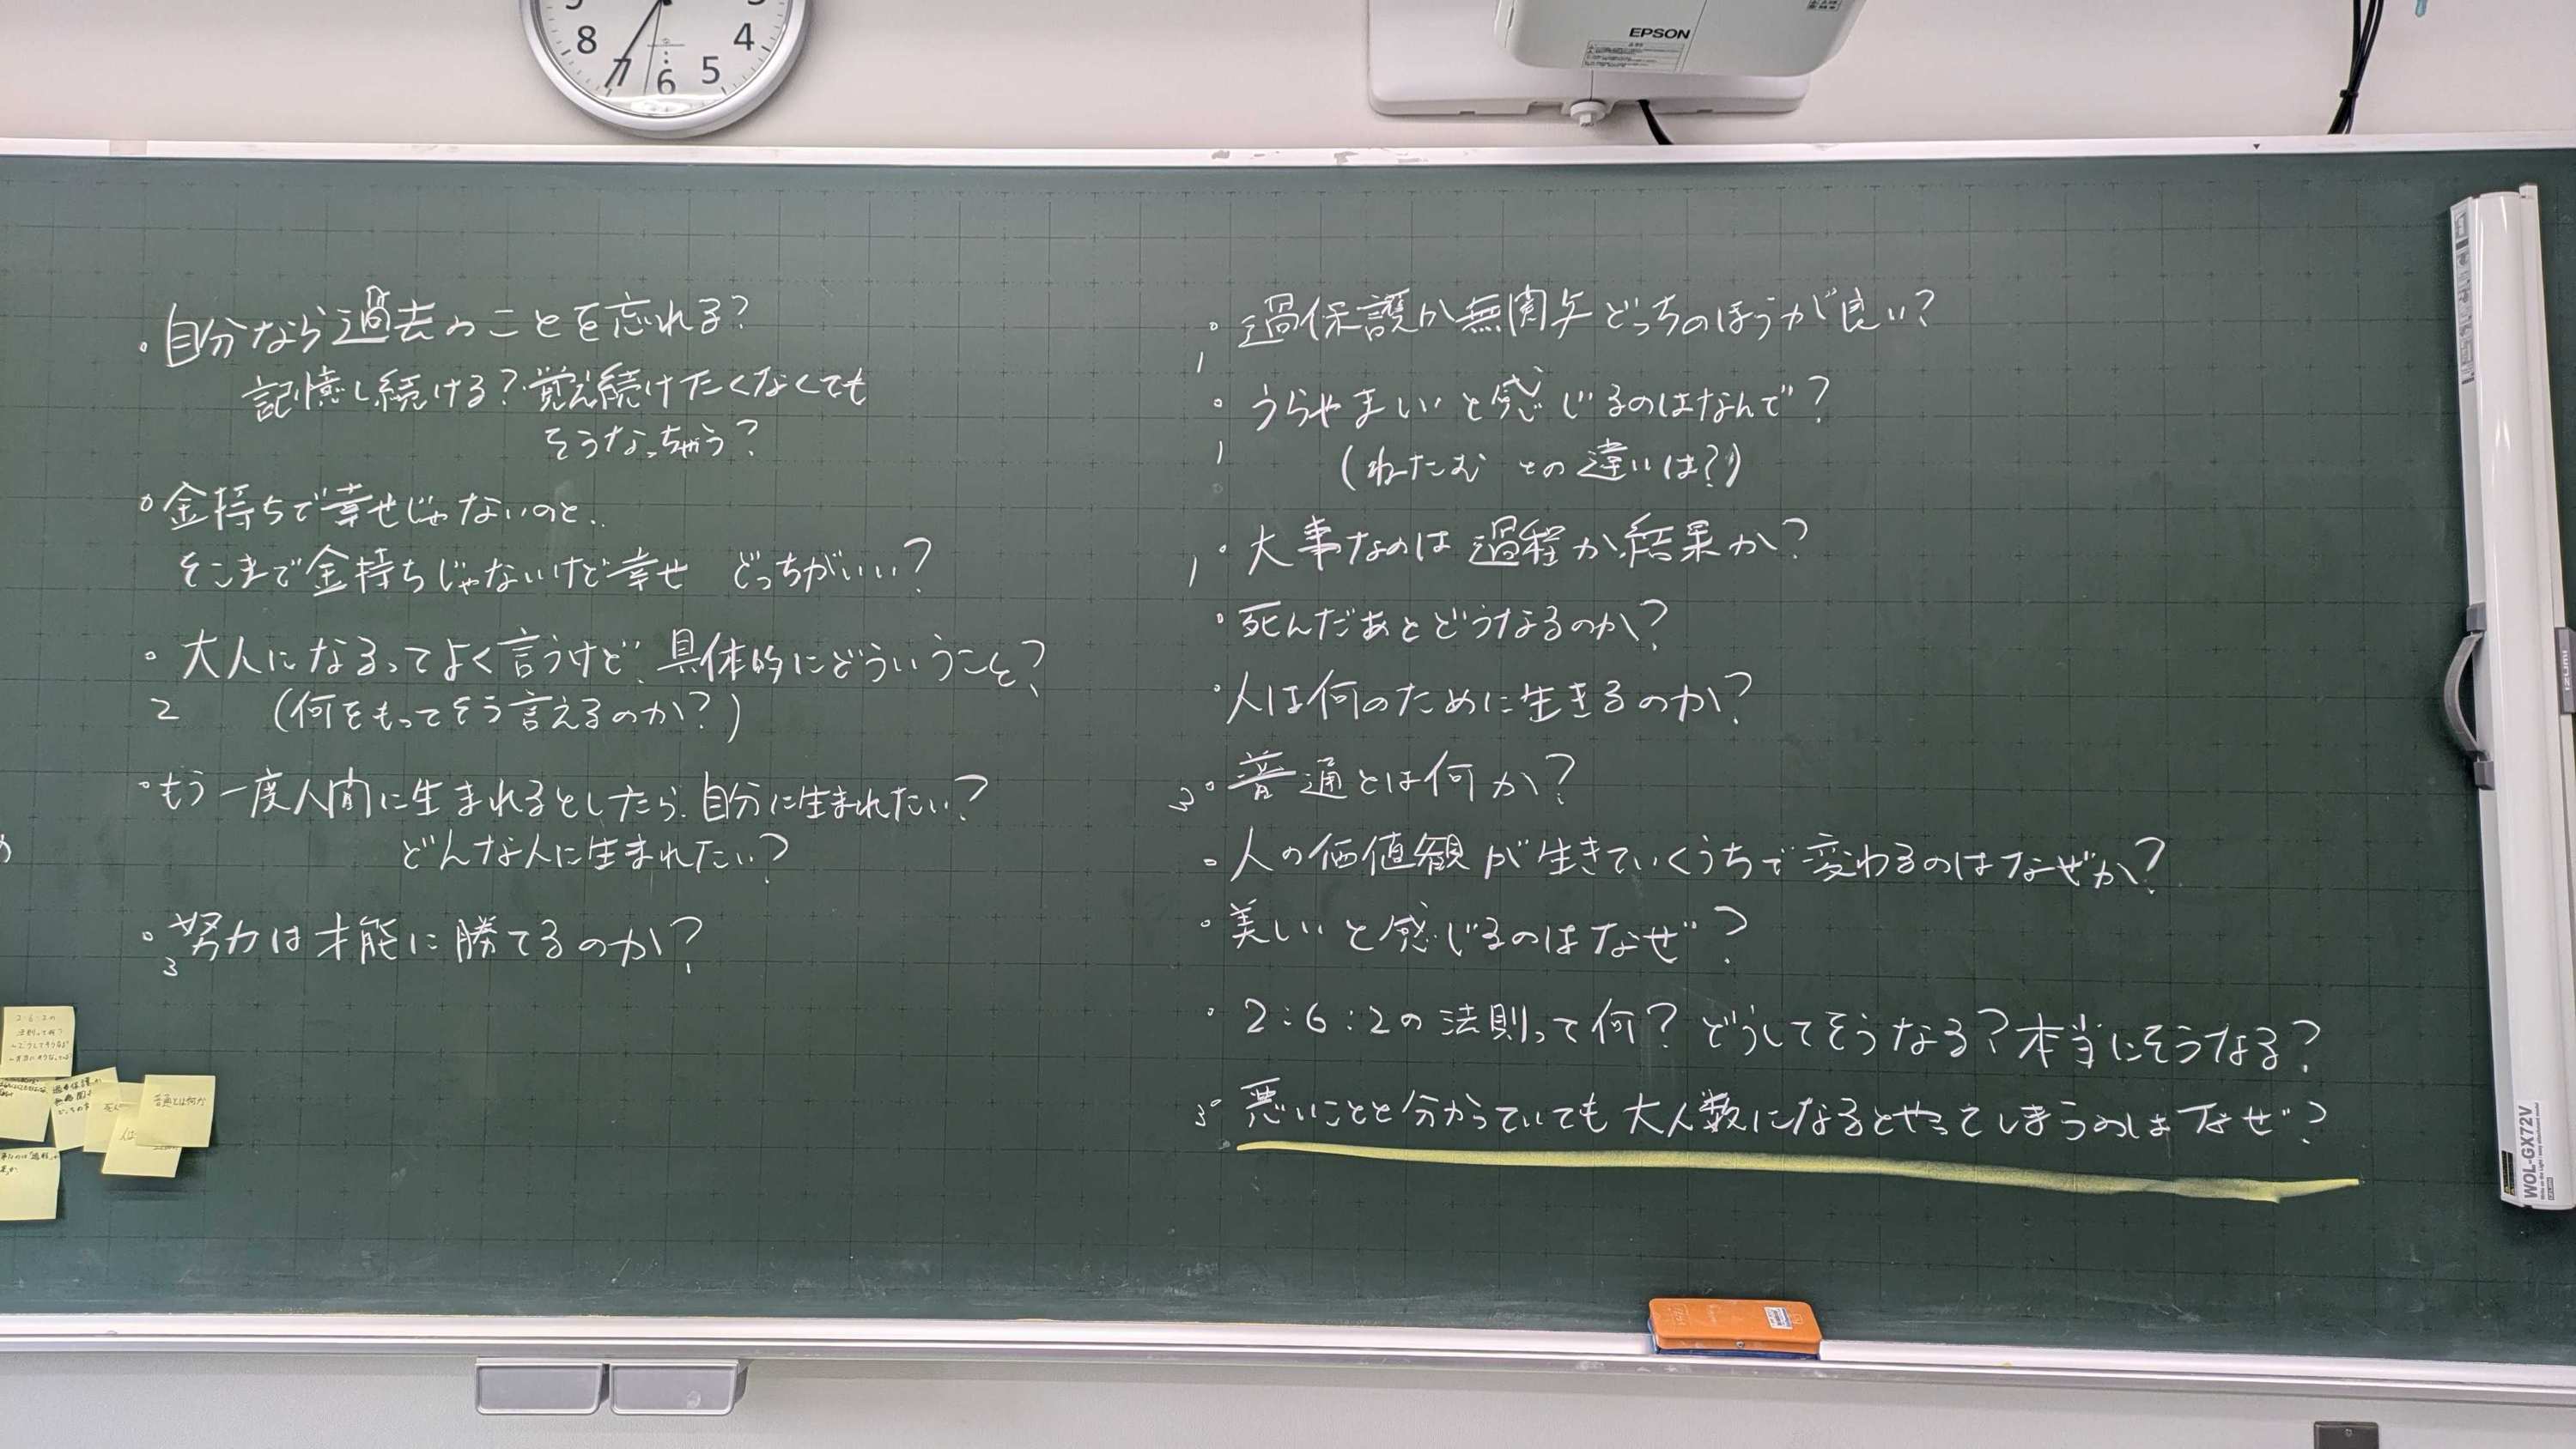 8 7 6 5 4
EPSON
。自分なら過去のことを忘れる?
記憶し続ける?覚え続けたくなくても
そうなっちゃう?
。金持ちで幸せじゃないのと、
そこまで金持ちじゃないけど幸せ どっちがいい?
。大人になるってよく言うけど、具体的にどういうこと?
2 (何をもってそう言えるのか?)
。もう一度人間に生まれるとしたら、自分に生まれたい?
どんな人に生まれたい?
。努力は才能に勝てるのか?
3
。過保護か無関与どっちのほうが良い?
1
。うらやまいいと感じるのはなんで?
1 (ねたむ との違いは?)
1 。大事なのは過程か結果か?
。死んだあとどうなるのか?
。人は何のために生きるのか?
3 。普通とは何か?
。人の価値観が生きていくうちで変わるのはなぜか?
。美しいと感じるのはなぜ?
。2:6:2の法則って何?どうしてそうなる?本当にそうなる?
3 。悪いことと分かっていても大人数になるとやってしまうのはなぜ?
2:6:2の
法則って何?
普通とは何か
WOL-GX72V
IZUMI